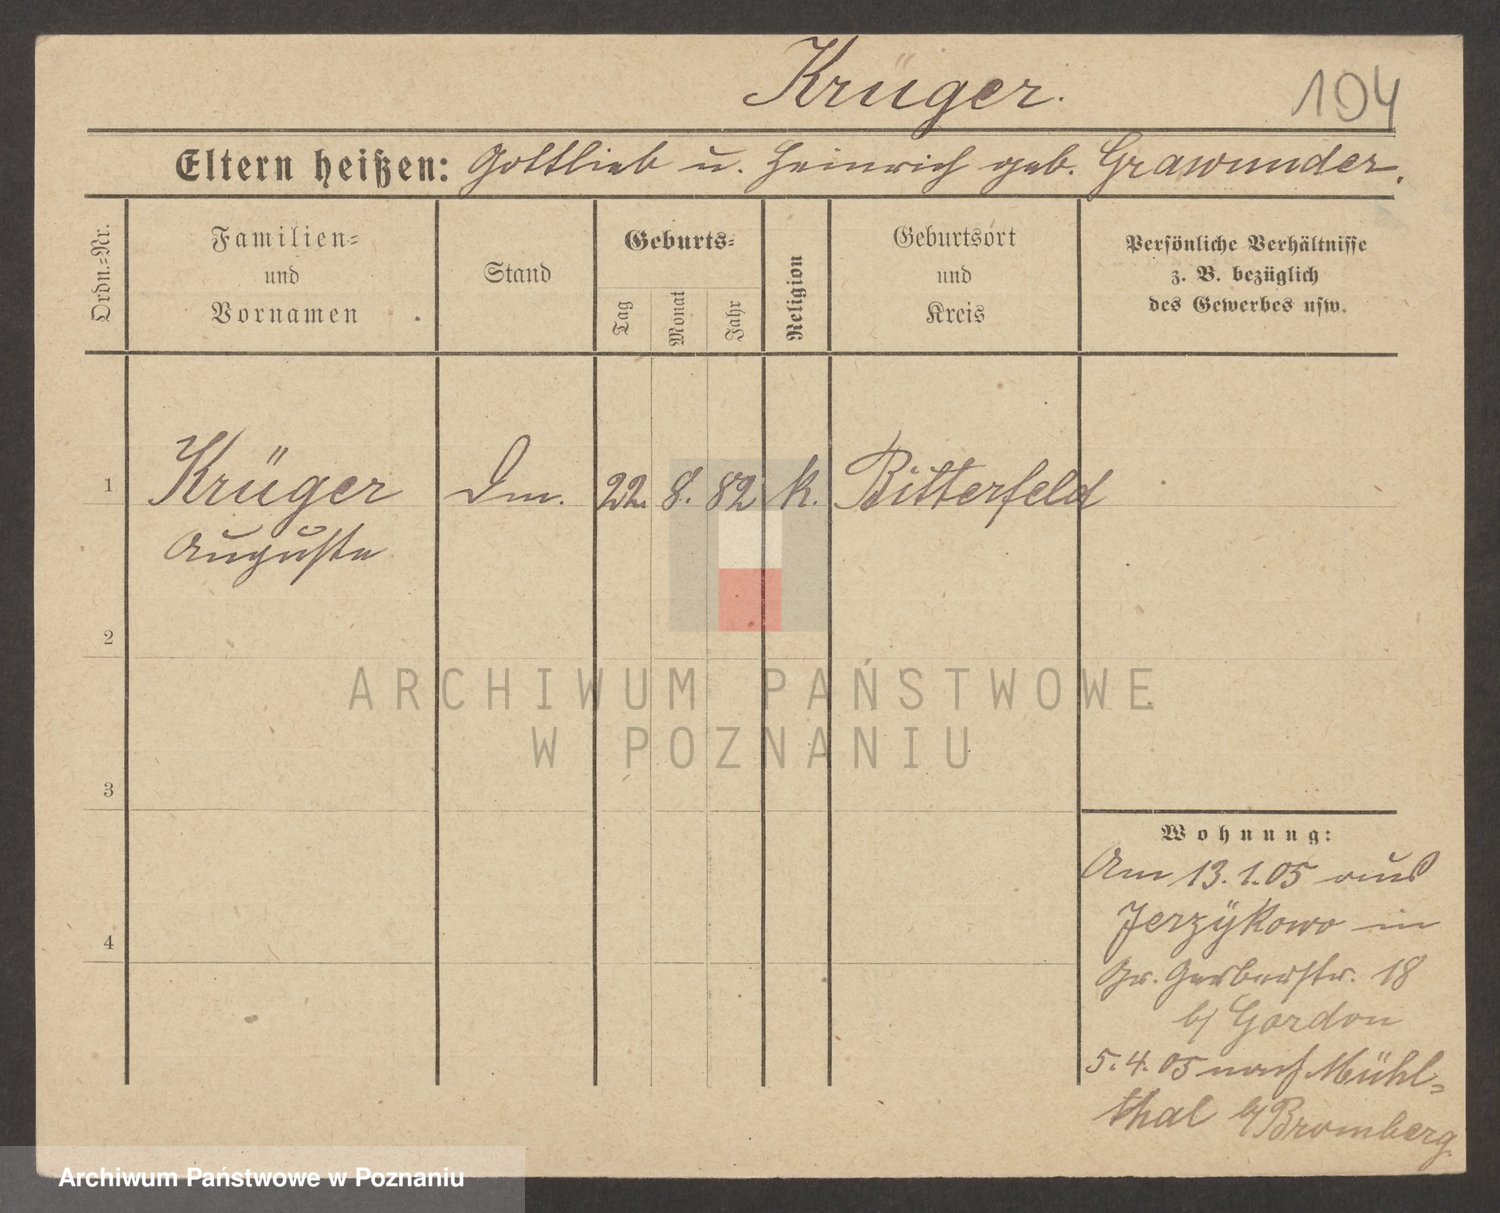 Krüger.
104
Eltern heißen: Gottlieb u. Heinrich geb. Grawunder.
Ordn.-Nr.
Familien-
und
Vornamen
Stand
Geburts-
Tag
Monat
Jahr
Religion
Geburtsort
und
Kreis
Persönliche Verhältnisse
z. B. bezüglich
des Gewerbes usw.
1 Krüger Dm. 22. 8. 82 k. Bitterfeld
Auguste
2
3
4
Wohnung:
Am 13.1.05 aus
Jerzÿkowo in
Gr. Gerberstr. 18
b/ Gordon
5.4.05 nach Mühl-
thal b/ Bromberg
ARCHIWUM PAŃSTWOWE
W POZNANIU
Archiwum Państwowe w Poznaniu